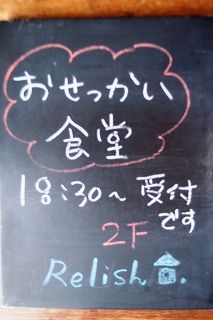 おせっかい
食堂
18:30〜 受付
です
2F
Relish